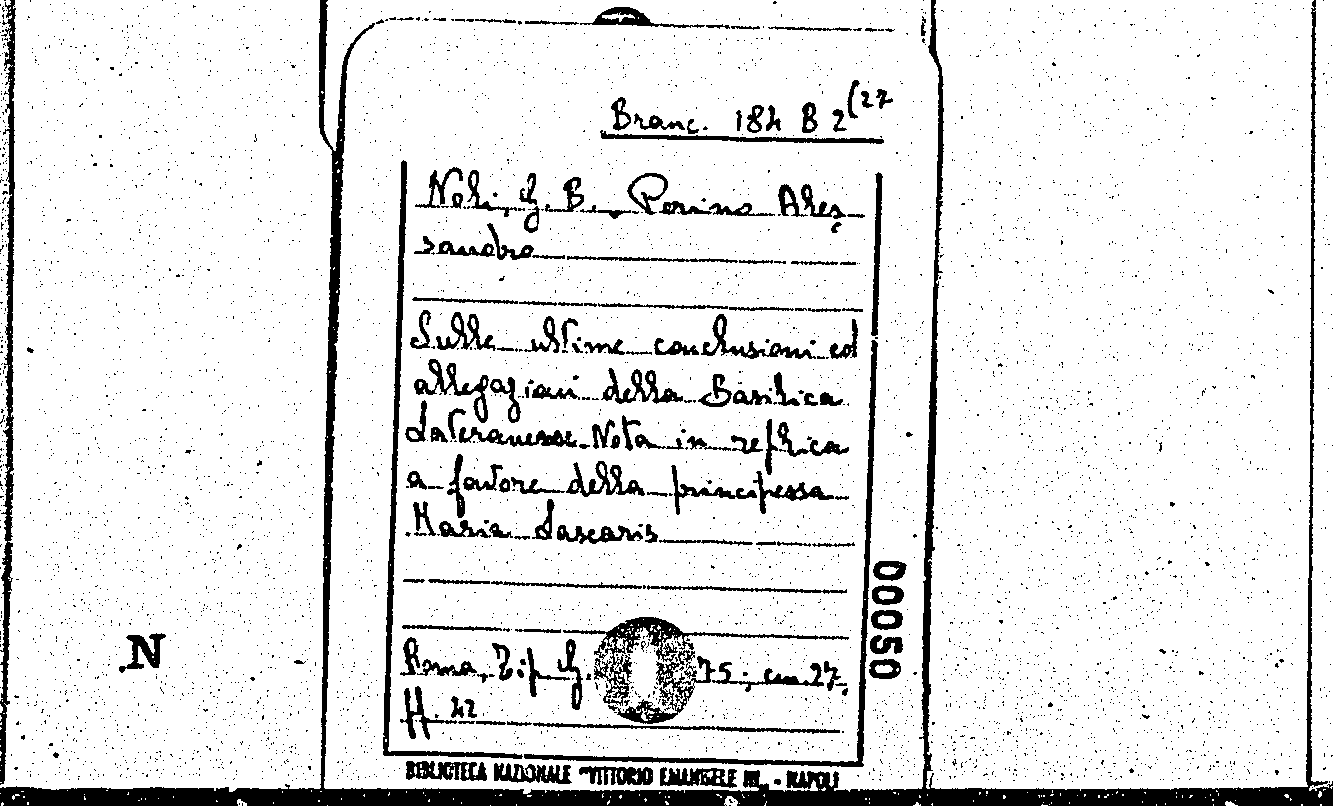 Branc. 184 B 2(27
Noli, G. B., Porino Ales
sandro
Sulle ultime conclusioni ed
allegazioni della Basilica
Lateranense. Nota in replica
a favore della principessa
Maria Lascaris
Roma, Tip. G. 75; cm. 27,
pp. 22
BIBLIOTECA NAZIONALE "VITTORIO EMANUELE III„ - NAPOLI
00050
N